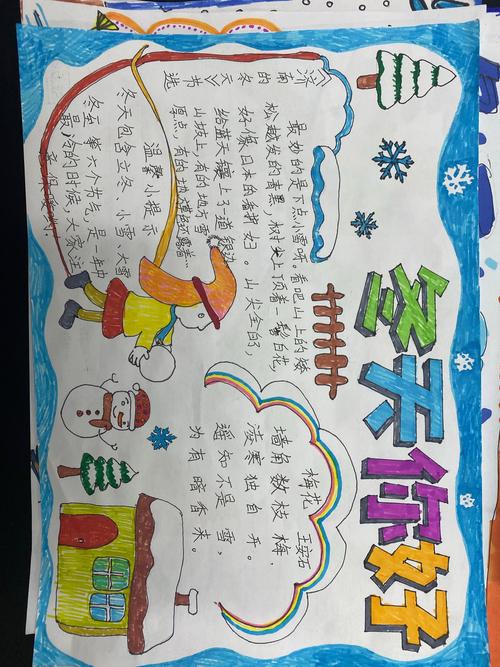 冬天你好
《济南的冬天》节选
最妙的是下点小雪呀。看吧山上的矮
松越发的青黑，树尖上顶着一髻白花，
好像日本的看护妇。山尖全白，
给蓝天镶上了一道银边
山坡上，有的地方雪
厚点，有的草色还露着…
温馨小提示
冬天包含立冬、小雪、大雪
冬至等六个节气，是一年中
最冷的时候，大家注
意保暖
梅花
王安石
墙角数枝梅，
凌寒独自开。
遥知不是雪，
为有暗香来。